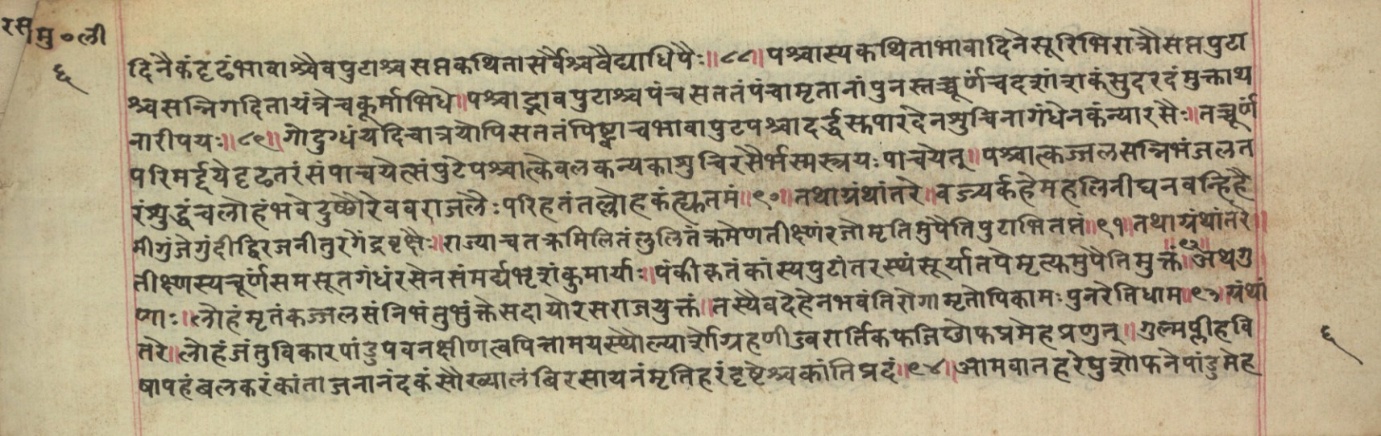 रसमु०ली
६
दिनैकं दृढं भावाश्चैव पुटाश्च सप्त कथिता सर्वैश्च वैद्याधिपैः॥८८॥ पश्चास्य कथिता भावादिने सूरिभि रात्रौ सप्त पुटा
श्च सन्निगदिता यंत्रे च कूर्माभिधे॥ पश्चाद्भाव पुटाश्च पंच सततं पंचामृतानां पुनस्तच्चूर्णं च दशांशकं सुदरदं मुक्ताथ
नारीपयः॥८९॥ गोदुग्धं यदि चात्रयोपि सततं पिष्ट्वा च भावापुट पश्चादर्द्ध सपारदेन शुचिना गंधेन कंन्यारसैः॥ तच्चूर्णं
परिमर्द्दये दृढतरं संपाचयेत्संपुटे पश्चात्केवलकन्यकाशुचिरसैर्भस्मस्त्रयः पाचयेत्॥ पश्चात्कज्जलसन्निभं जलत
रं शुद्धं च लोहं भवेदुष्णैरेव वराजलैः परिहतं तल्लोहकं ह्यूत्तमं॥९०॥ तथा ग्रंथांतरे॥ वज्र्यर्कहेमहलिनीघनवन्हिहै
मीगुंजेगुंदीद्विरजनीतुरगेंद्रवृक्षैः॥ राज्या च तक्रमिलितं लुलितं क्रमेण तीक्ष्णं रजो मृतिमुपैति पुटाभितप्तं॥९१॥ तथा ग्रंथांतरे॥
तीक्ष्णस्य चूर्णसमसूतगंधं रसेन संमर्द्य भृशं कुमार्याः॥ पंकीकृतं कांस्यपुटांतरस्थं सूर्यातपे मृत्युमुपैति मुक्तं॥९२॥ अथ गु
णाः॥ लोहं मृतं कज्जलसंनिभं तु भुंक्ते सदा यो रसराजयुक्तं॥ तस्यैव देहे न भवंति रोगा मृतोपि कामः पुनरेति धाम॥९३॥ ग्रंथां
तरे॥ लोहं जंतुविकारपांडुपवनक्षीणत्वपित्तामयस्थौल्यार्शोग्रहणीज्वरार्तिकफजिछोफप्रमेहप्रणुत्॥ गुल्मप्लीहवि
षापहं बलकरं कांताजनानंदकं सौख्यालंबि रसायनं मृतिहरं दृष्टेश्च कांतिप्रदं॥९४॥ आमवातहरेषु शोफने पांडुमेह
६